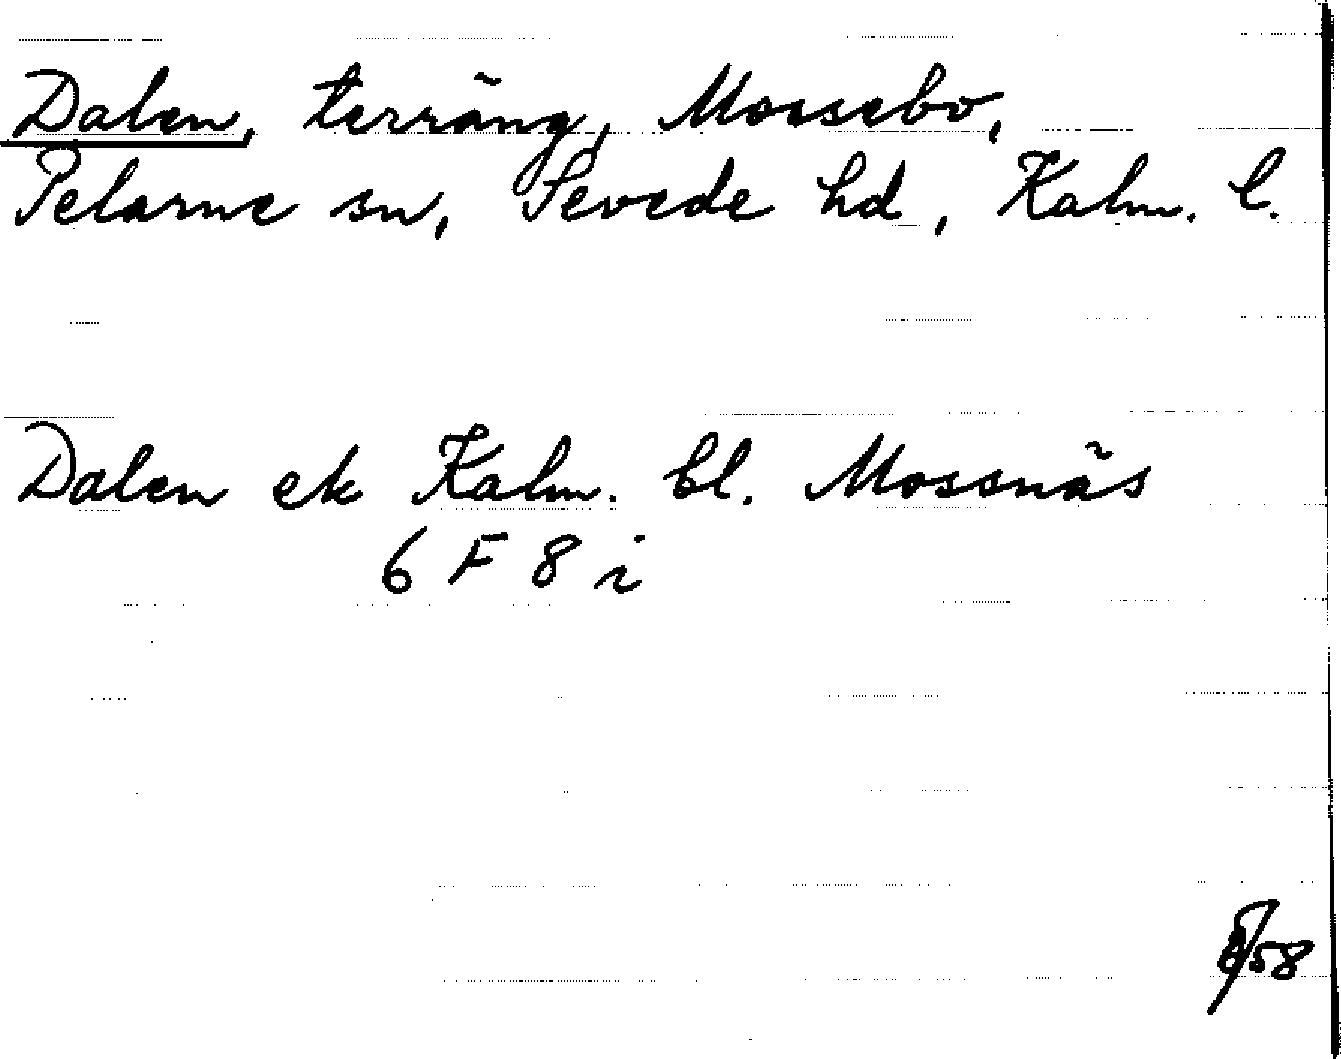 Dalen, terräng, Mossebo,
Pelarne sn, Sevede hd, Kalm. l.
Dalen ek Kalm. bl. Mossnäs
6 F 8 i